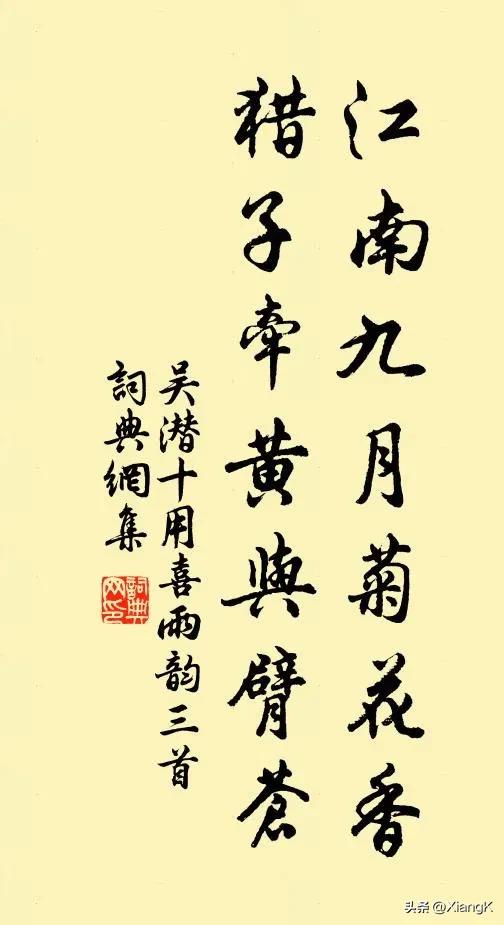 江南九月菊花香
猎子牵黄與臂蒼
吴潜十用喜雨韵三首
詞典網集
詞典網印
头条 @XiangK